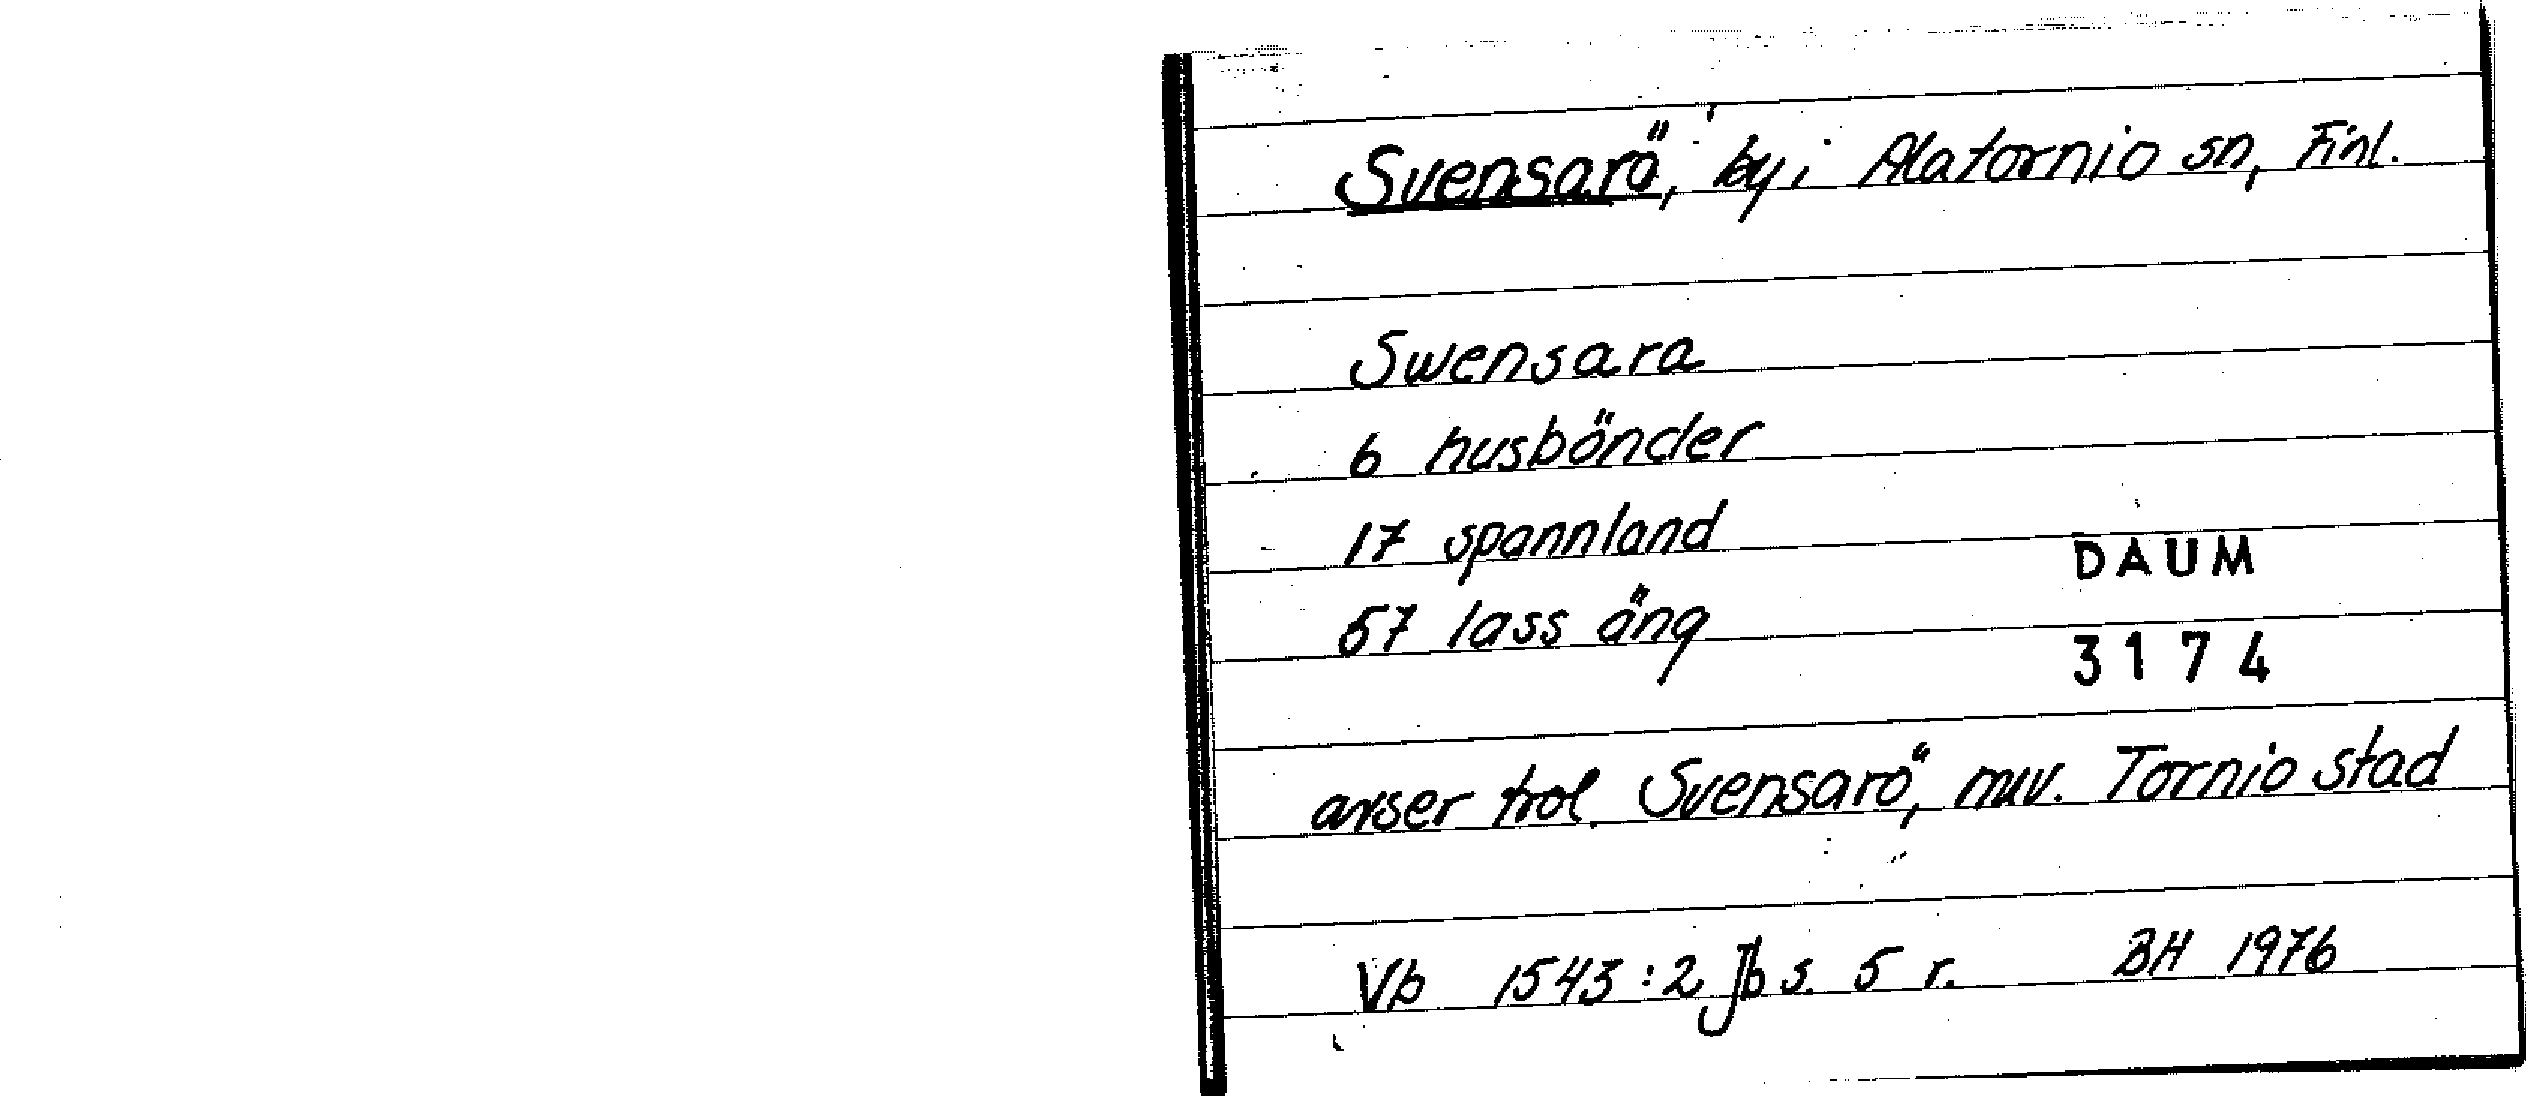 Svensarö, by i Alatornio sn, Finl.
Swensara
6 husbönder
17 spannland
57 lass äng
DAUM
3174
avser trol. Svensarö, nuv. Tornio stad
Vb 1543:2 Jb s. 5 r. BH 1976